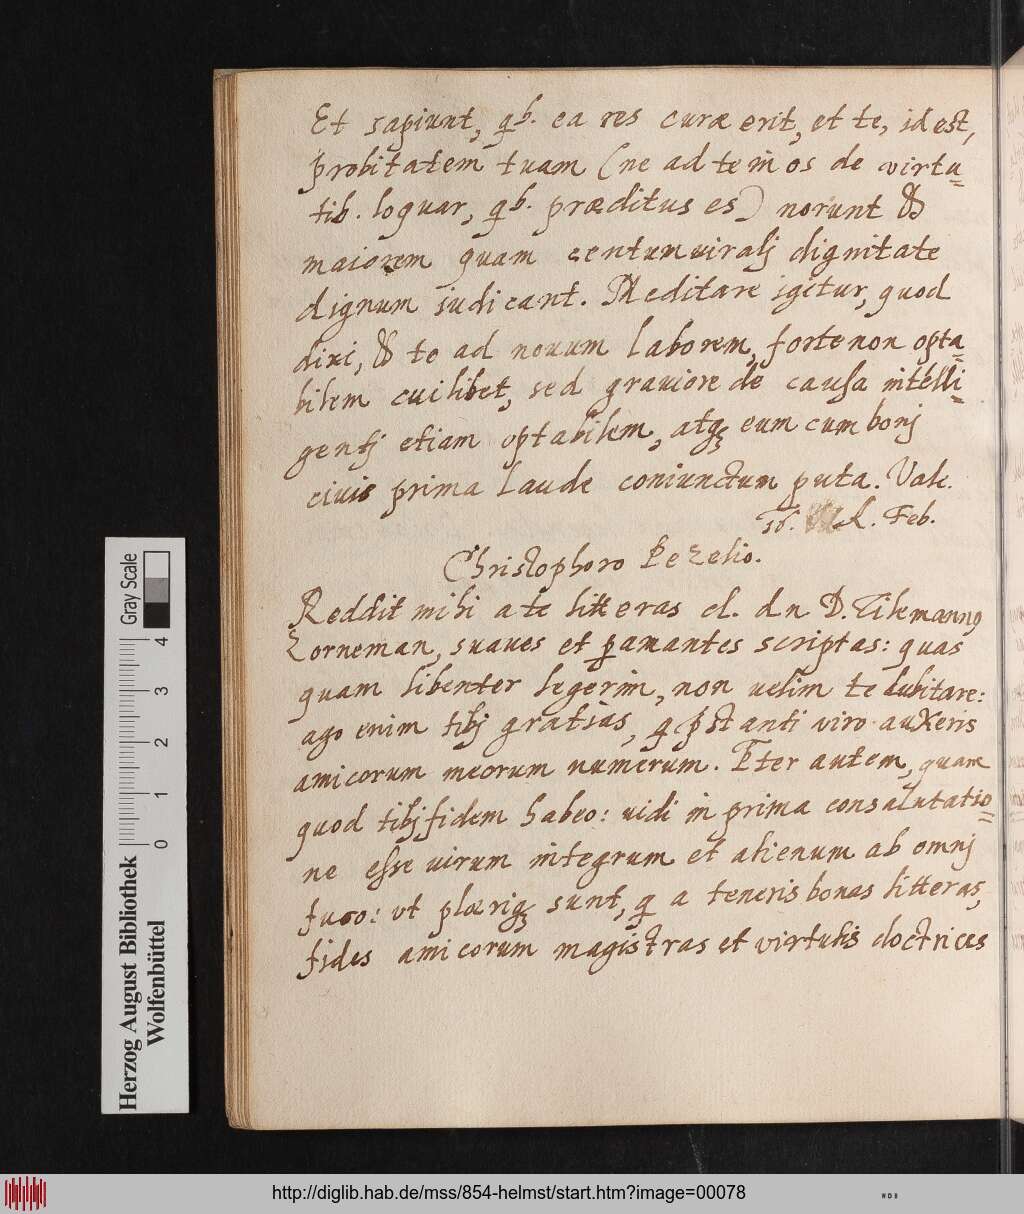 Et sapiunt, qb. ea res curæ erit, et te, id est,
probitatem tuam (ne ad te in os de virtu=
tib. loquar, qb. præditus es) norunt &
maiorem quam centumuiralj dignitate
dignum judicant. Meditare igitur, quod
dixi, & te ad nouum laborem, forte non opta=
bilem cuilibet, sed grauiore de causa intelli=
gentj etiam optabilem, atq; eum cum bonj
ciuis prima laude coniunctum puta. Vale.
Feb.
Christophoro Pezelio.
Reddit mihi a te litteras cl. dn D. Tilemanng
Zorneman, suaues et peramantes scriptas: quas
quam libenter legerim, non uelim te dubitare:
ago enim tibj gratias, q pstanti viro auxeris
amicorum meorum numerum. Pter autem, quam
quod tibj fidem habeo: uidi in prima consalutatio=
ne esse uirum integrum et alienum ab omnj
fuco: vt plærig; sunt, q a teneris bonas litteras,
fides amicorum magistras et virtutis doctrices
Gray Scale
0 1 2 3 4
Herzog August Bibliothek
Wolfenbüttel
http://diglib.hab.de/mss/854-helmst/start.htm?image=00078